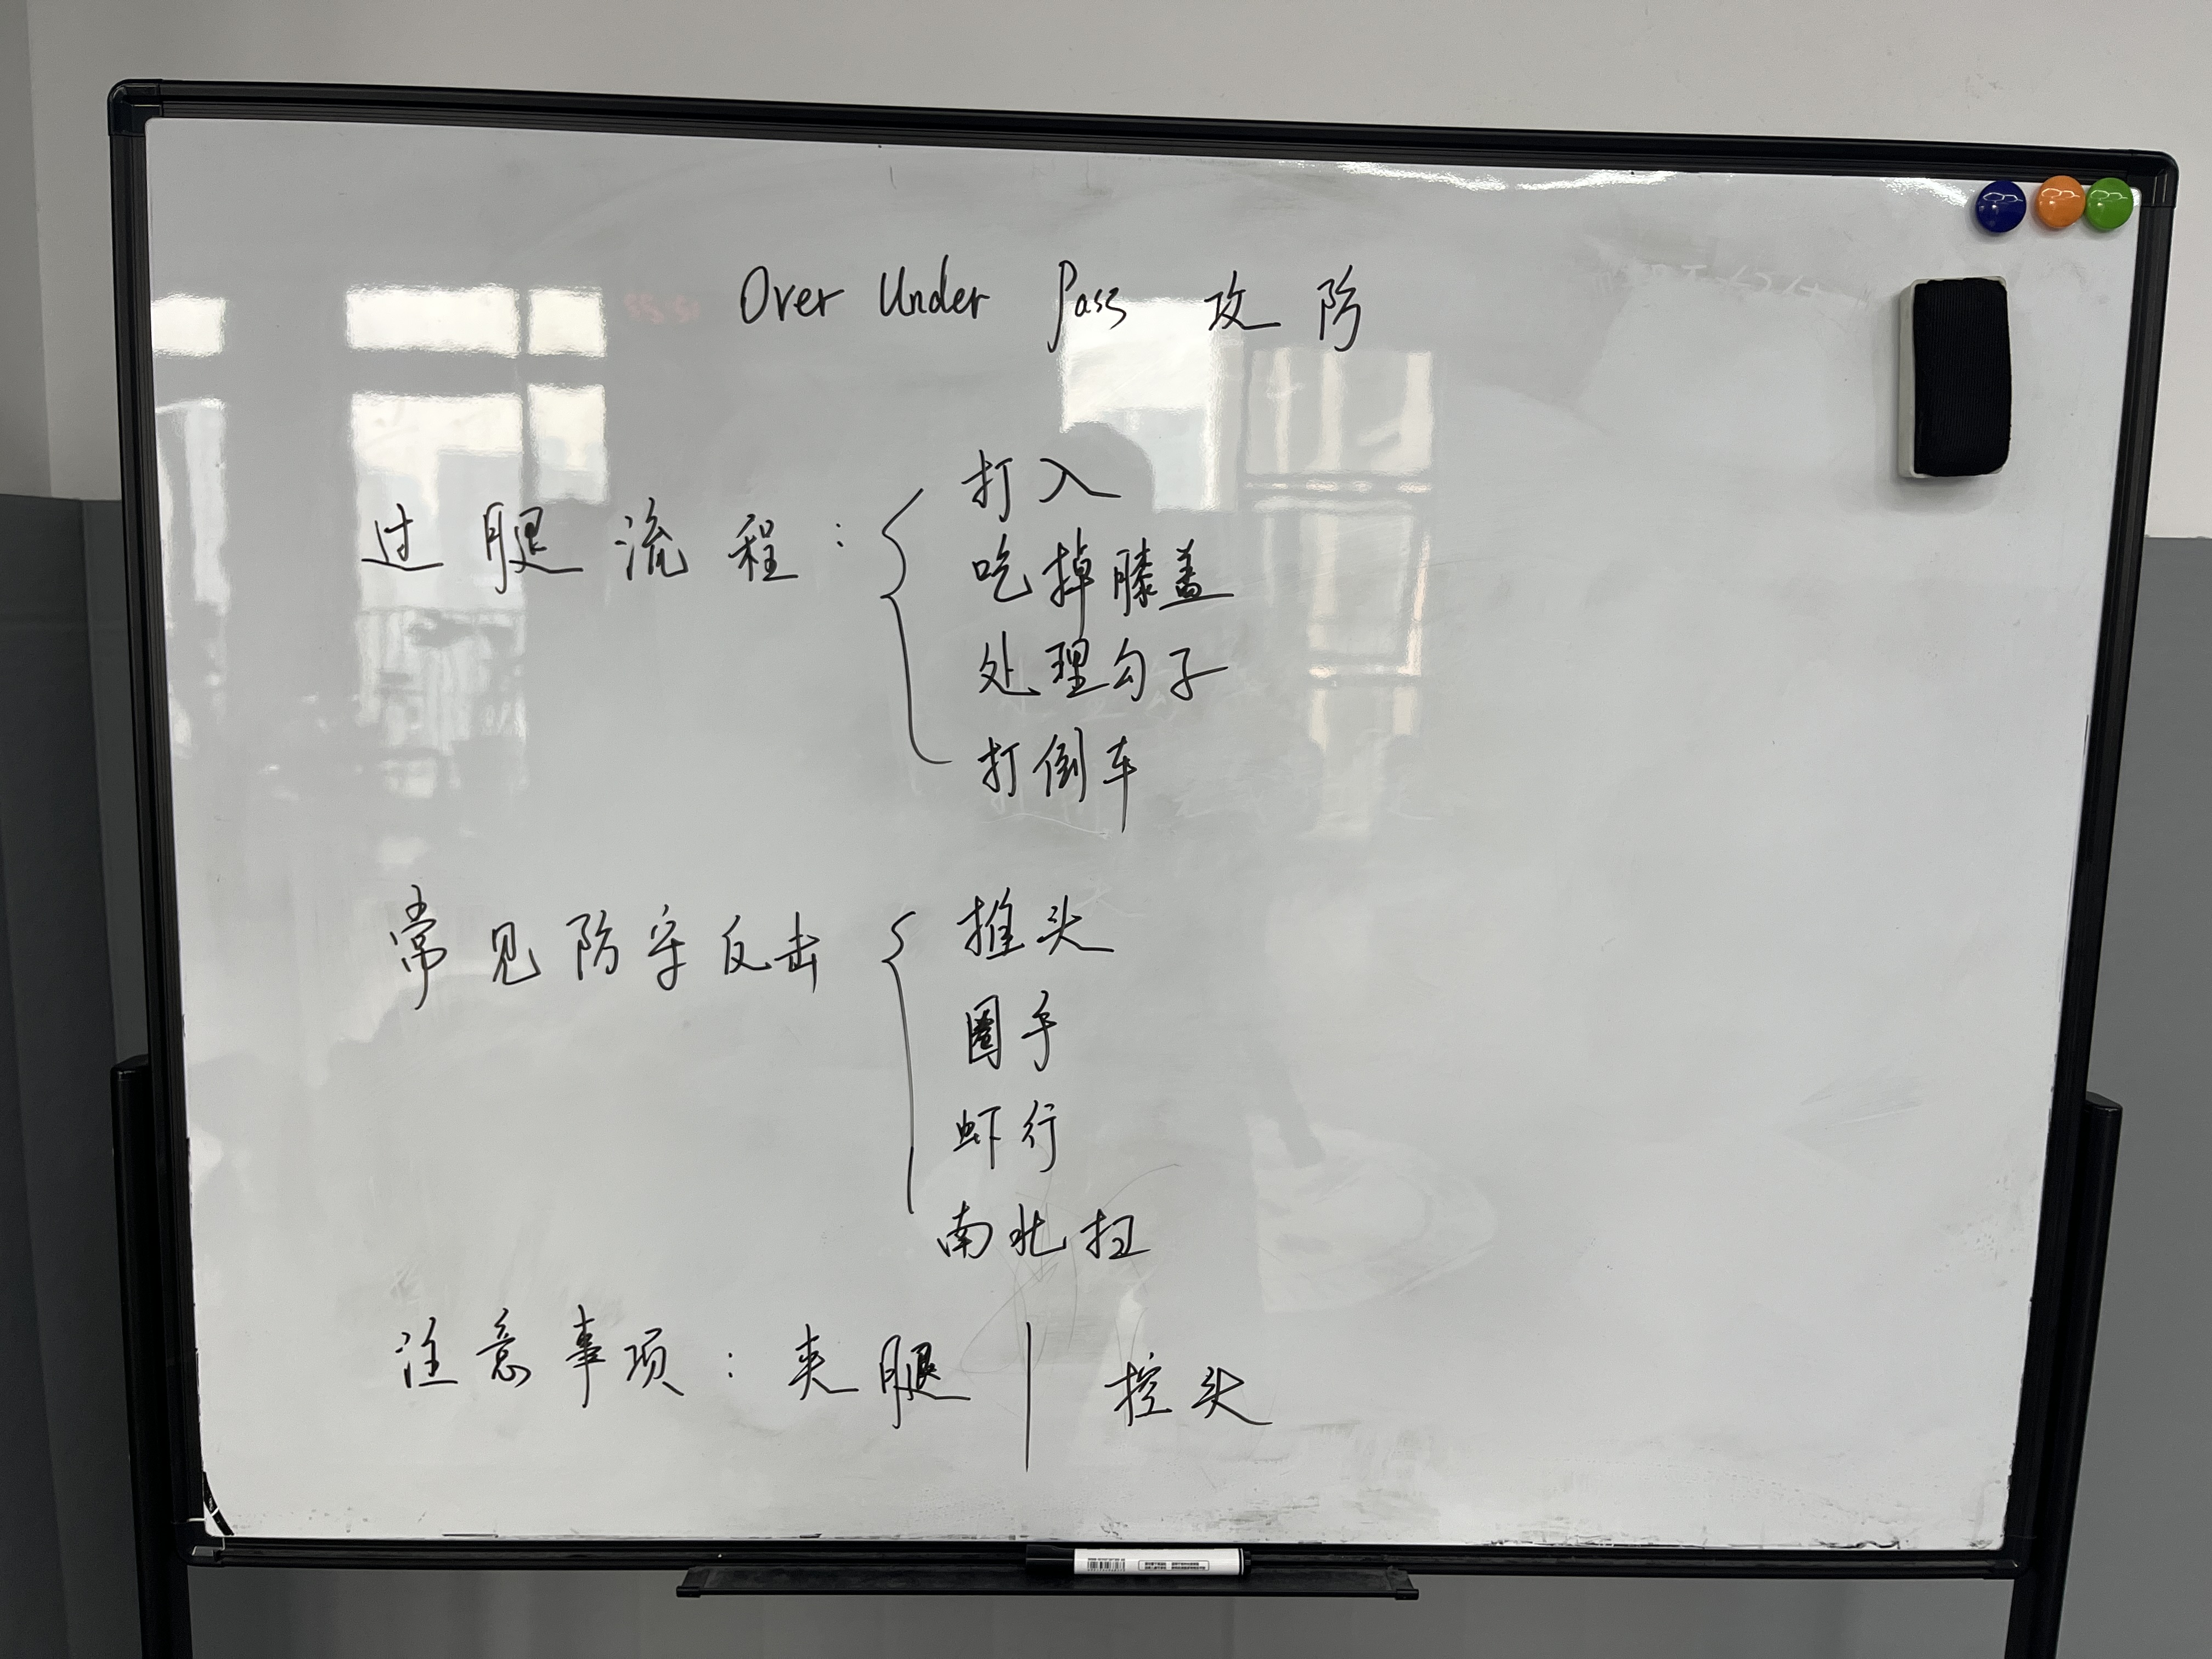 Over Under Pass 攻防
过腿流程：
打入
吃掉膝盖
处理勾子
打倒车
常见防守反击
推头
圈手
虾行
南北扫
注意事项：夹腿 | 控头